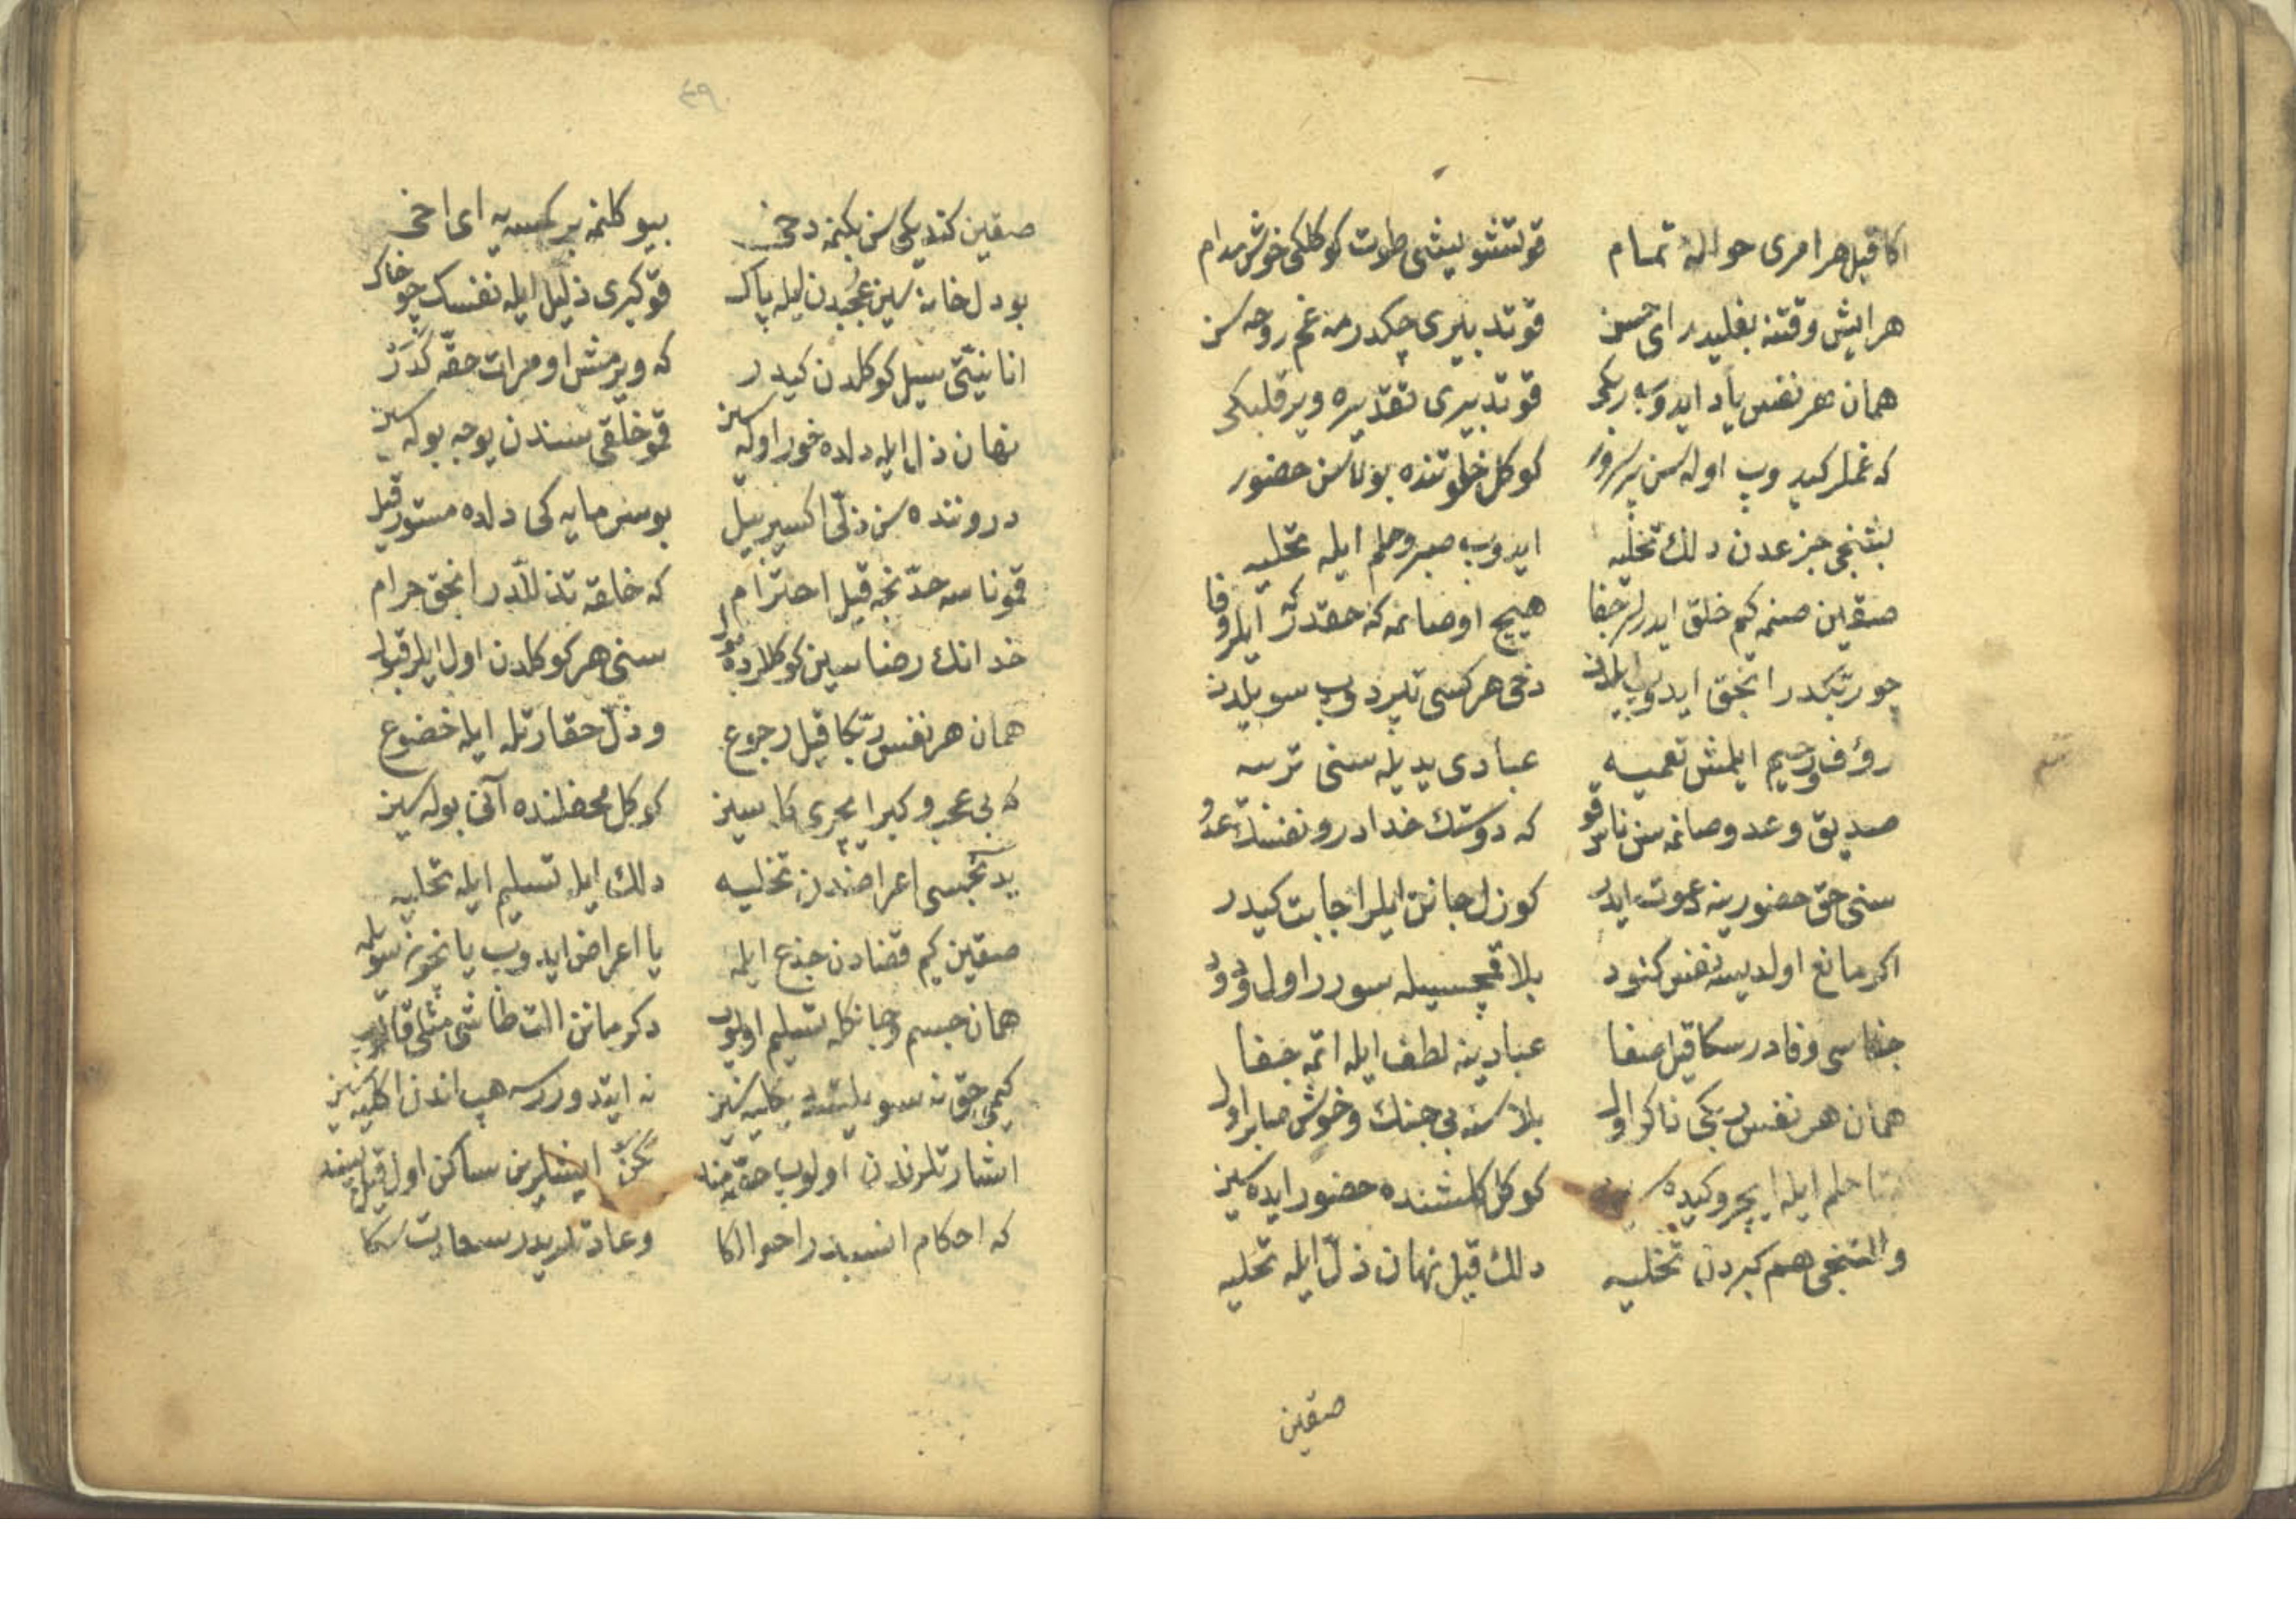 اکا قیل هر امری حواله تمام قو تشویشی طوت کوکلکی خوش مدام
هر ایش وقتنه بغلیدر ای حسن قو تدبیری چکدرمه غم روحه سن
همان هر نفس یاد ایدوب ربکی قو تدبیری تقدیره ویر قلبکی
که غملر کیدوب اوله سن پر سرور کوکل خلوتنده بولاسن حضور
بشنجی جزعدن دلك تخلیه ایدوب صبر و حلم ایله تحلیه
صقین صنمه کیم خلق ایدرلر جفا هیچ اوصانمه که حقدر که ایلر وفا
چو ربکدر انجق ایدوب ایلدن دخی هر کسی تپردوب سویلدن
رؤف و رحیم ایلمش تعمیه عبادی یدیله سنی تربیه
صدیق و عدو صانمه سن ناس قو که دوستك خدادر و نفسك عدو
سنی حق حضورینه دعوت ایدر کوزل جانن ایلر اجابت کیدر
اکر مانع اولدیسه نفس کنود بلا قمچیسیله سورر اول ودود
جفاسی وفادر سکا قیل صفا عبادینه لطف ایله اتمه جفا
همان هر نفس ربکی ذاکر اول بلاسنه بی جنك و خوش صابر اول
حلم ایله ایچرو کیده سن کوکل کلشنده حضور ایده سز
و التنجی هم کبردن تخلیه دلك قیل نهان ذلّ ایله تحلیه
صقین
٤٩
صقین کندیکی سن بکنمه دخی بیوکلنمه بر کسیه ای اخی
بو دل خانه سین عجبدن ایله پاك قو کبری ذلیل ایله نفسك چو خاك
انانیتی سیل کوکلدن کیدر که ویرمش او مرات حقه کدر
نهان ذل ایله دلده خور اوله سز قمو خلقی سندن یوجه بوله سز
دروننده سن ذلّی اکسیر بیل بو سرمایه کی دلده مستور قیل
قمو ناسه حدّنجه قیل احترام که خلقه تذللّدر انجق حرام
خدانك رضاسین کوکللرده بول سنی هر کوکلدن اول ایلر قبول
همان هر نفس ربّکا قیل رجوع و ذلّ حقارتله ایله خضوع
که بی عجب و کبر ایچری کلسیز کوکل محفلنده آنی بوله سیز
یدنجسی اعراضدن تخلیه دلك ایله تسلیم ایله تحلیه
صقین کیم قضادن جزع ایلمه یا اعراض ایدوب یا نیچون سویلمه
همان جسم و جانکله تسلیم اولوب دکرمانن الت طاشی مثلی قالوب
کیمی حق نه سویلتسه دیکلیه سیز نه ایتدورسه هپ اندن اکلیه سیز
اشارتلرندن اولوب حصّه مند ایشلرین ساکن اول قیل پسند
که احکام انسبدر احوالکا و عادتلریدر سعادت سکا